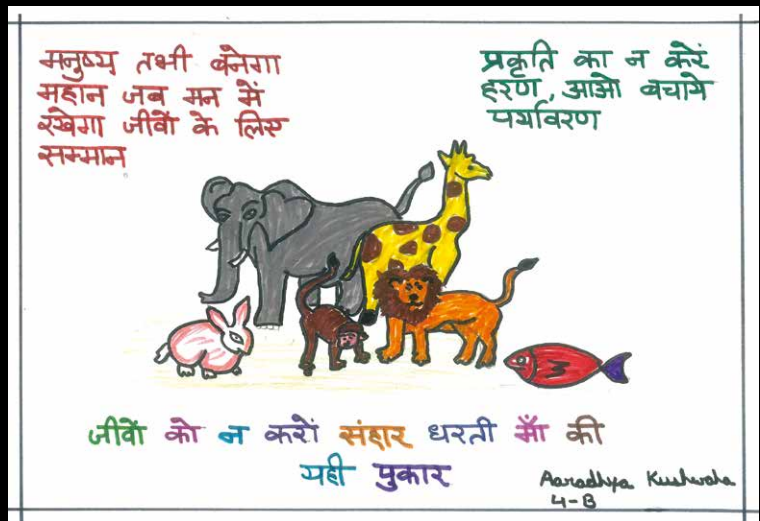 मनुष्य तभी बनेगा
महान जब मन में
रखेगा जीवों के लिए
सम्मान
प्रकृति का न करें
हरण, आओ बचाये
पर्यावरण
जीवों को न करों संहार धरती माँ की
यही पुकार
Aaradhya Kushwaha
4-B